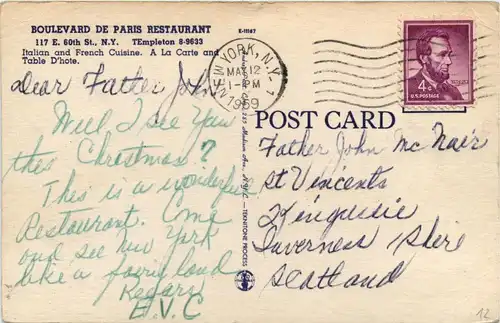 BOULEVARD DE PARIS RESTAURANT
117 E. 60th St., N.Y. TEmpleton 8-9633
Italian and French Cuisine. A La Carte and
Table D'hote.
Dear Father John
Will I see You
this Christmas?
This is a wonderful
Restaurant. Come
and see New York
like a fairy land
Regards
E.V.C
E-11187
NEW YORK, N.Y. 1
MAY 12
1-PM
1959
4¢
U.S. POSTAGE
POST CARD
Father John Mc Nair
St Vincents
Kingussie
Inverness Shire
Scotland
TEKNITONE PROCESS
12